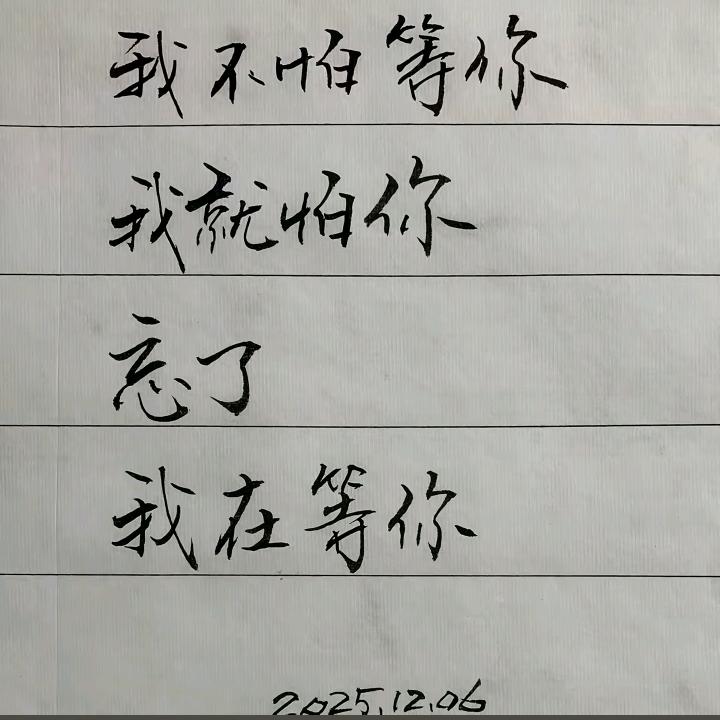 我不怕等你
我就怕你
忘了
我在等你
2025.12.06